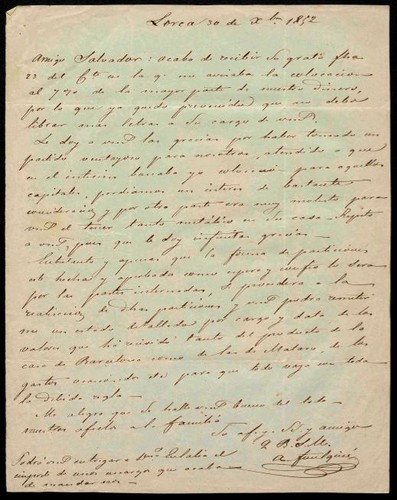 Lorca 30 de Xbre 1852
Amigo Salvador: acabo de recibir su grata fha
23 del Cte en la q. me avisaba la colocacion
al 7 p% de la mayor parte de nuestro dinero,
por lo que ya quedo prevenido que no debo
librar mas letras a su cargo de vmd.
Le doy a vmd las gracias por haber tomado un
partido ventajoso para nosotros, atendido a que
en el interin hallaba yo colocacion para aquellos
capitales, perdiamos un interes de bastante
consideracion, y por otra parte era muy molesto para
vmd el tener tanto metalico en su casa. Repito
a vmd, pues que le doy infinitas gracias.
Entretanto y apenas que la forma de particiones
esté hecha y aprobada como espero y confio lo sera
por las partes interesadas. Se procedera a la
realizacion de dhas particiones, y vmd podra remitir
me un estado detallado por cargo y data de los
valores que há recibido tanto del producto de la
casa de Barcelona como de las de Mataro, de los
gastos ocasionados &a para que todo vaya con toda
la debida regla.
Me alegro que se halle vmd bueno del todo
nuestros afectos a la familia
Su af. y amigo
Q. B. S. M.
A.
Podrá vmd entregar a Dña Eulalia el
importe de unos encargos que acaba
de mandarnos.